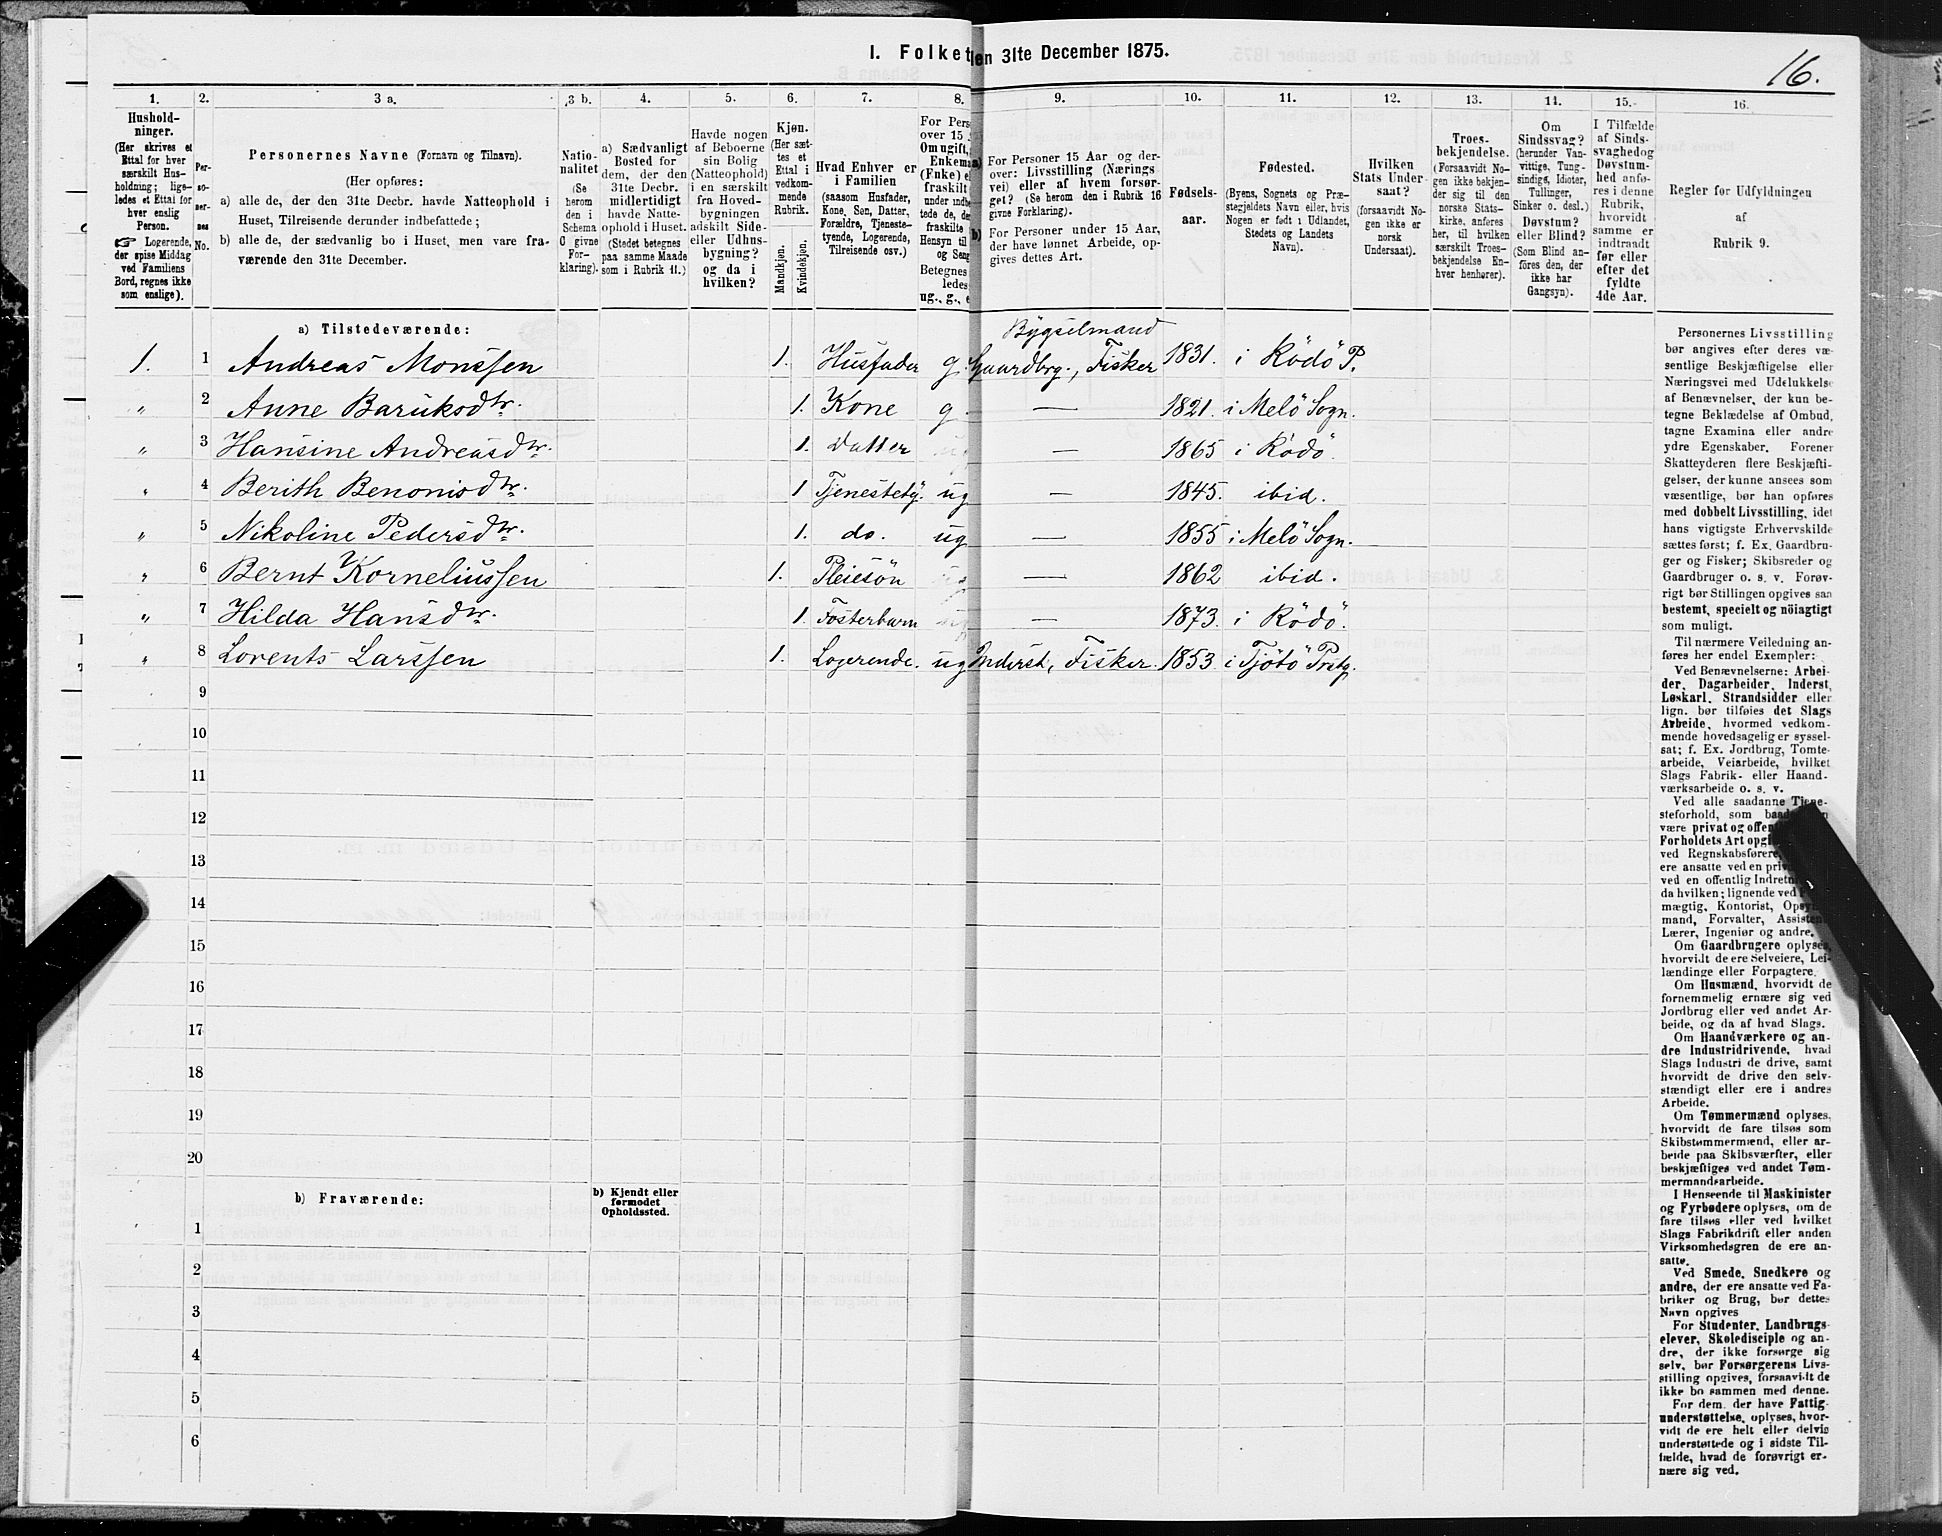 I. Folket en 31te December 1875.
16.
1. 2. 3 a. 3 b. 4. 5. 6. 7. 8. 9. 10. 11. 12. 13. 14. 15. 16.
Hushold-
ninger.
(Her skrives et
Ettal for hver
særskilt Hus-
holdning; lige-
ledes et Ettal for
hver enslig
Person.
☞ Logerende,
der spise Middag
ved Familiens
Bord, regnes ikke
som enslige).
Per-
so-
ner-
nes
No.
Personernes Navne (Fornavn og Tilnavn).
(Her opføres:
a) alle de, der den 31te Decbr. havde Natteophold i
Huset, Tilreisende derunder indbefattede;
b) alle de, der sædvanlig bo i Huset, men vare fra-
værende den 31te December.
Natio-
nalitet
(Se
herom
den i
Schema
O givne
For-
klaring).
a) Sædvanligt
Bosted for
dem, der den
31te Decbr.
midlertidigt
havde Natte-
ophold i Huset.
(Stedet betegnes
paa samme Maade
som i Rubrik 11.)
Havde nogen
af Beboerne
sin Bolig
(Natteophold)
i en særskilt
fra Hoved-
bygningen
adskilt Side-
eller Udhus-
bygning?
og da i
hvilken?
Kjøn.
(Her sæt-
tes et
Ettal i
vedkom-
mende
Rubrik.
Mandkjøn.
Kvindekjøn.
Hvad Enhver er
i Familien
(saasom Husfader,
Kone, Søn, Datter,
Forældre, Tjeneste-
tyende, Logerende,
Tilreisende osv.)
For Pers
over 15
Om ugift,
Enkem
(Fuke) e
fraskilt
under indb
tede de, de
fraskilte
Hensyn til
og Seng
Betegnes
ledes
ug., g., e
a) For Personer 15 Aar og der-
over: Livsstilling (Nærings
vei) eller af hvem forsør-
get? (Se herom den i Rubrik 16
givne Forklaring).
b) For Personer under 15 Aar,
der have lønnet Arbeide, op-
gives dettes Art.
Fødsels-
aar.
Fødested.
(Byens, Sognets og Præ-
stegjeldets Navn eller, hvis
Nogen er født i Udlandet,
Stedets og Landets
Navn).
Hvilken
Stats Under
saat?
(forsaavidt No-
gen ikke er
norsk
Undersaat).
Troes-
bekjendelse.
(Forsaavidt No-
gen ikke bekjen-
der sig til den
norske Stats-
kirke, anføres
her, til hvilken
særskilt Troes-
bekjendelse En-
hver henhører).
Om
Sindssvag?
(herunder Van-
vittige, Tung-
sindige, Idioter,
Tullinger,
Sinker o. desl.)
Døvstum?
eller Blind?
(Som Blind an-
føres den, der
ikke har
Gangsyn).
I Tilfælde
af Sinds-
svaghed og
Døvstum-
hed anfø-
res i denne
Rubrik,
hvorvidt
samme er
indtraadt
før eller
efter det
fyldte
4de Aar.
Regler for Udfyldningen
af
Rubrik 9.
a) Tilstedeværende:
Bygselmand
1. 1 Andreas Monssen 1. Husfader g. Gaardbrg., Fisker 1831. i Rödö P.
" 2 Anne Baruksdtr. 1. Kone g — 1821. i Melö Sogn.
" 3 Hansine Andreasdtr. 1. Datter ug — 1865 i Rödö.
" 4 Berith Benonisdtr. 1 Tjenestety. ug — 1845. ibid.
" 5 Nikoline Pedersdtr. 1. do. ug — 1855 i Melö Sogn.
" 6 Bernt Korneliussen 1. Pleiesön ug — 1862 ibid.
" 7 Hilda Hansdtr. 1. Fosterbarn ug — 1873. i Rödö.
" 8 Lorents Larssen 1. Logerende. ug Inderst, Fisker. 1853. i Tjötö Prstg.
9
10
11
12
13
14
15
16
17
18
19
20
b) Fraværende:
b) Kjendt eller
formodet
Opholdssted.
1
2
3
4
5
6
Personernes Livsstilling
bør angives efter deres væ-
sentlige Beskjæftigelse eller
Næringsvei med Udelukkelse
af Benævnelser, der kun be-
tegne Beklædelse af Ombud,
tagne Examina eller andre
ydre Egenskaber. Forener
Skatteyderen flere Beskjæfti-
gelser, der kunne ansees som
væsentlige, bør han opføres
med dobbelt Livsstilling, idet
hans vigtigste Erhvervskilde
sættes først; f. Ex. Gaardbru-
ger og Fisker; Skibsreder og
Gaardbruger o. s. v. Forøv-
rigt bør Stillingen opgives saa
bestemt, specielt og nöiagtigt
som muligt.
Til nærmere Veiledning an-
føres her endel Exempler:
Ved Benævnelserne: Arbei-
der, Dagarbeider, Inderst,
Løskarl, Strandsidder eller
lign. bør tilføies det Slags
Arbeide, hvormed vedkom-
mende hovedsagelig er syssel-
sat; f. Ex. Jordbrug, Tomte-
arbeide, Veiarbeide, hvilket
Slags Fabrik- eller Haand-
værksarbeide o. s. v.
Ved alle saadanne Tjene-
steforhold, som baade
være privat og offen
Forholdets Art opgi
ved Regnskabsførere,
ere ansatte ved en priv
ved en offentlig Indretn
da hvilken; lignende ved
mægtig, Kontorist, Opsyn
mand, Forvalter, Assistent
Lærer, Ingeniør og andre.
Om Gaardbrugere oplyses,
hvorvidt de ere Selveiere, Lei-
lændinge eller Forpagtere.
Om Husmænd, hvorvidt de
fornemmelig ernære sig ved
Jordbrug eller ved andet Ar-
beide, og da af hvad Slags.
Om Haandværkere og an-
dre Industridrivende, hvad
Slags Industri de drive, samt
hvorvidt de drive den selv-
stændigt eller ere i andres
Arbeide.
Om Tømmermænd oplyses,
hvorvidt de fare tilsøs som
Skibstømmermænd, eller ar-
beide paa Skibsværfter, eller
beskjæftiges ved andet Tøm-
mermandsarbeide.
I Henseende til Maskinister
og Fyrbødere oplyses, om de
fare tilsøs eller ved hvilket
Slags Fabrikdrift eller anden
Virksomhedsgren de ere an-
satte.
Ved Smede, Snedkere og
andre, der ere ansatte ved Fa-
briker og Brug, bør dettes
Navn opgives
For Studenter, Landbrugs-
elever, Skoledisciple og an-
dre, der ikke forsørge sig
selv, bør Forsørgerens Livs-
stilling opgives, forsaavidt de
ikke bo sammen med denne.
For dem, der have Fattig-
understøttelse, oplyses, hvor-
vidt de ere helt eller delvis
understøttede og i sidste Til-
fælde, hvad de forøvrigt er-
nære sig ved.